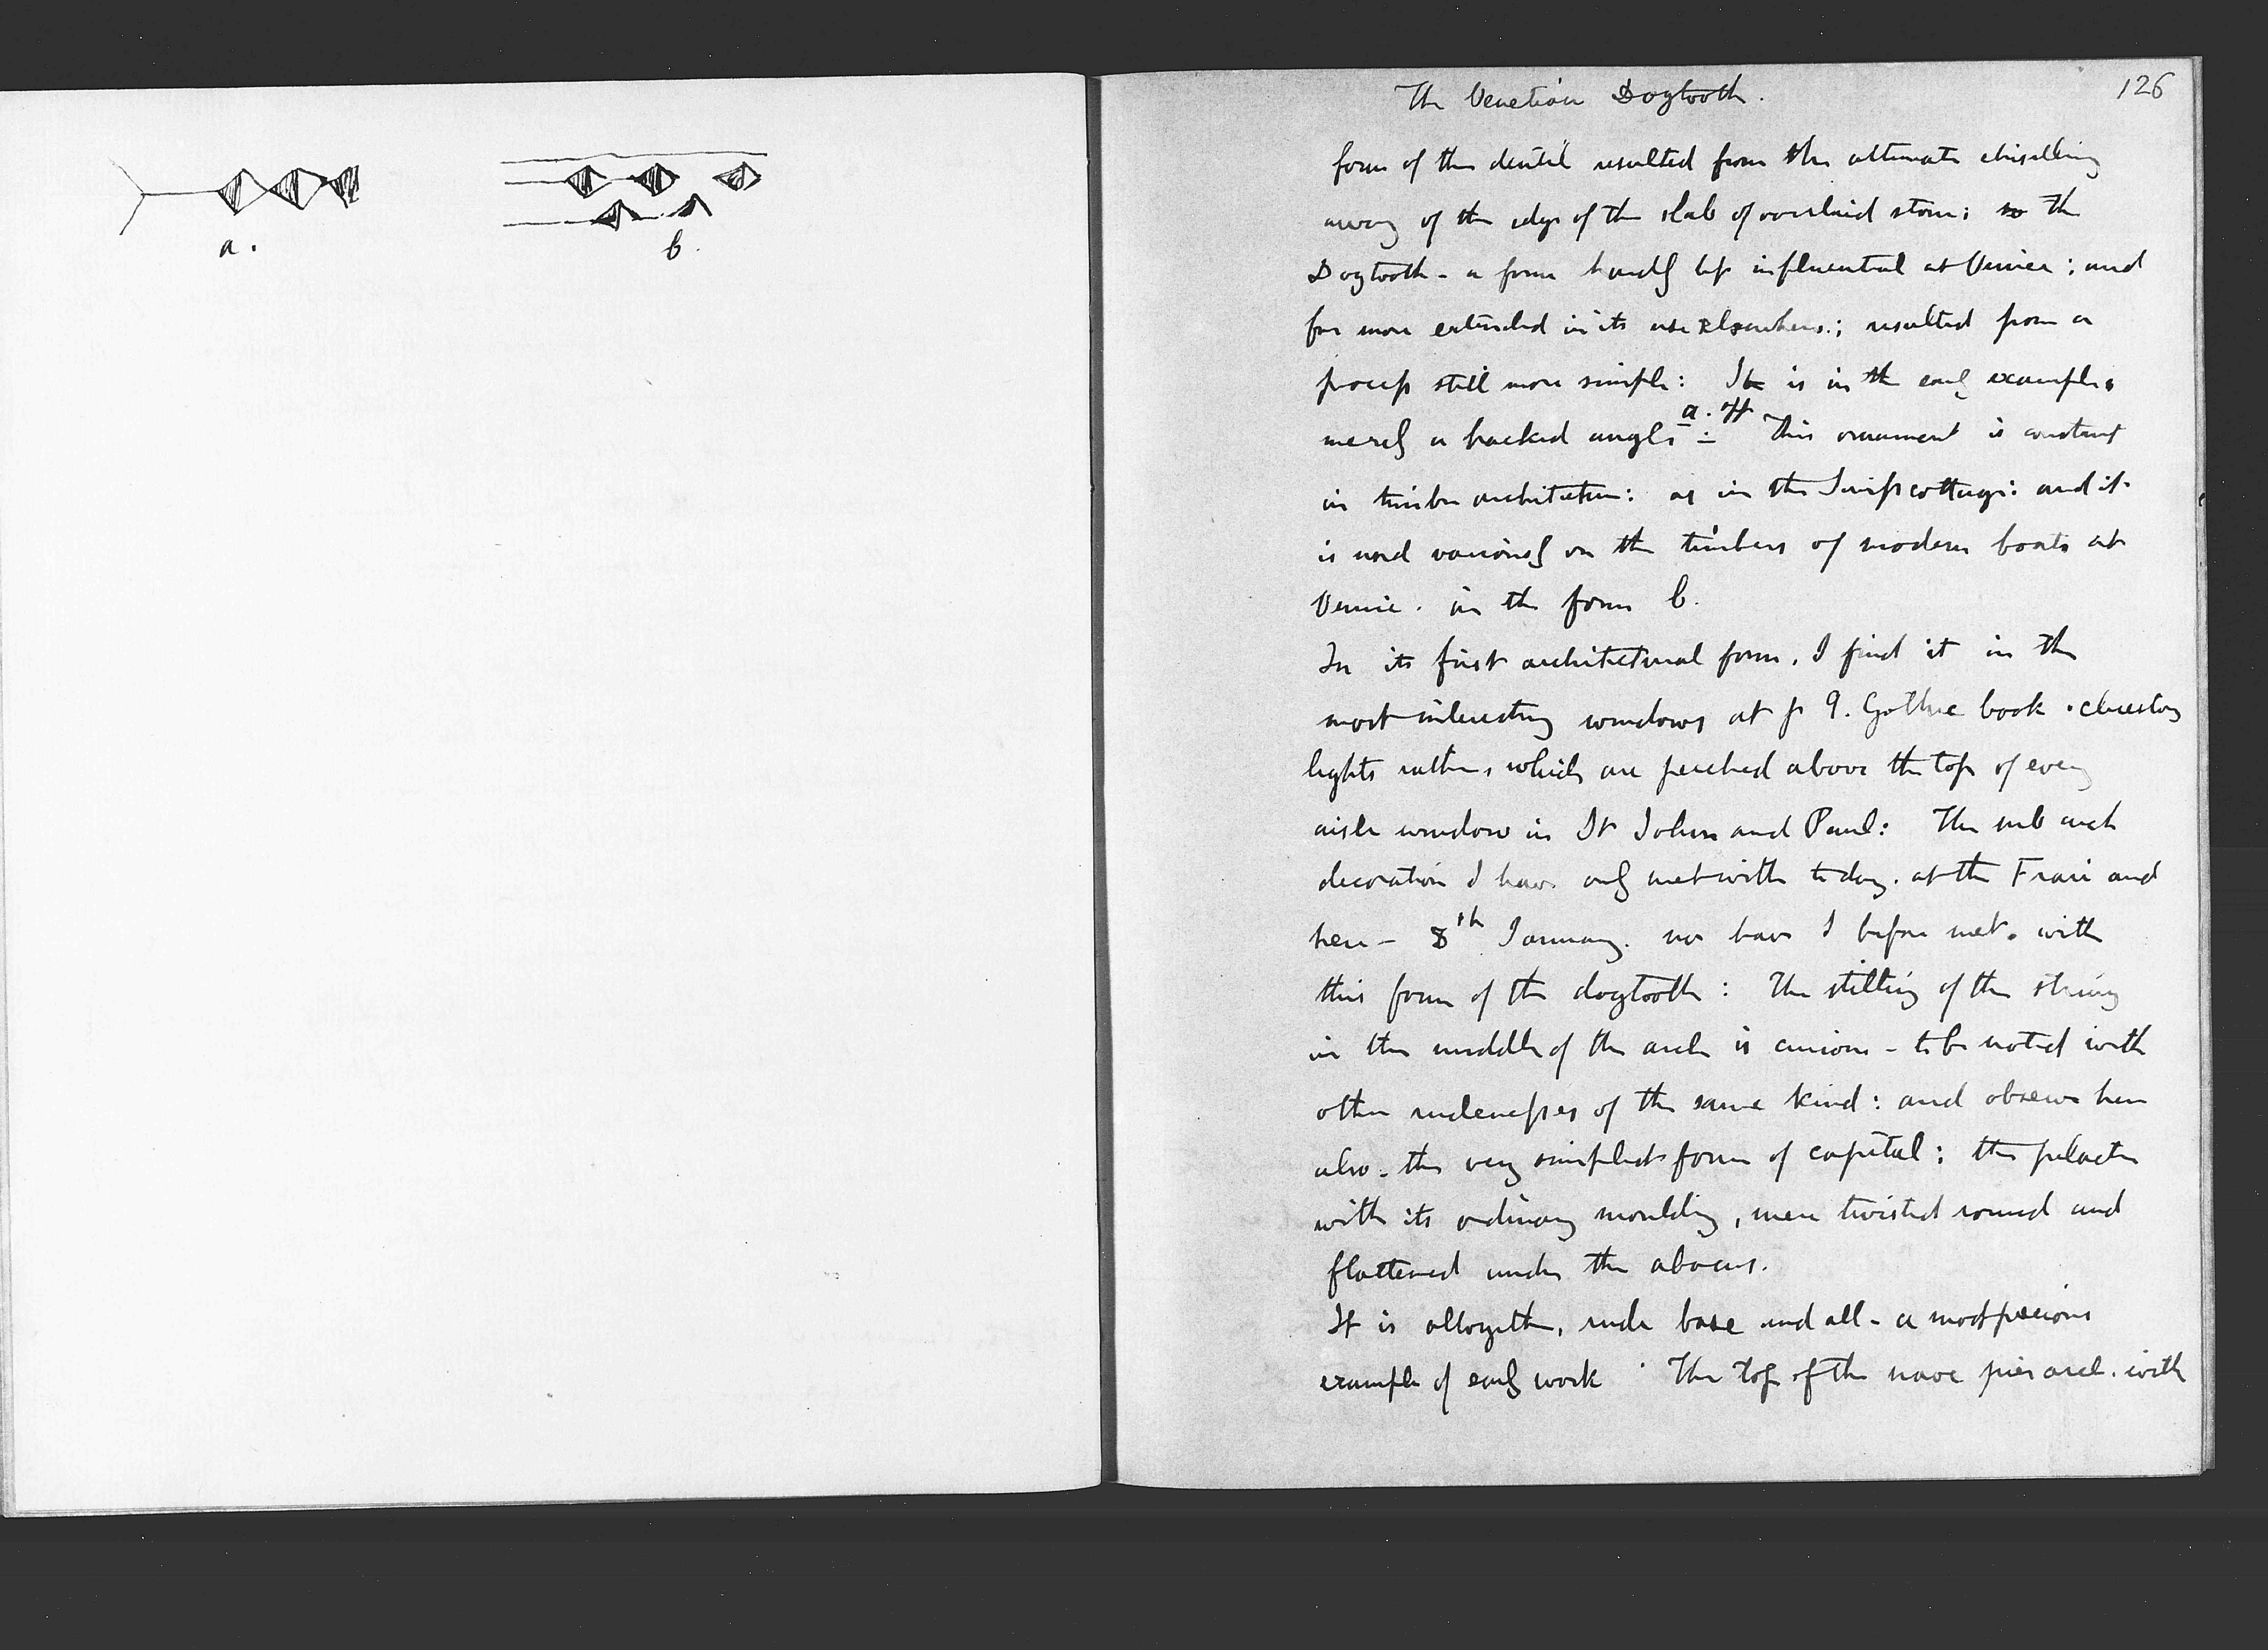 a.
b.
126
The Venetian Dogtooth.
form of the dentil resulted from the alternate chiselling
away of the edge of the slab of overlaid stone: so the
Dogtooth - a form hardly less influential at Venice; and
far more extended in its use elsewhere.; resulted from a
process still more simple: It is in the early examples
merely a hacked angle a. This ornament is constant
in timber architecture: as in the Swiss cottage: and it
is used variously on the timbers of modern boats at
Venice. in the form b.
In its first architectural form, I find it in the
most interesting windows at p 9. Gothic book. clerestory
lights rather, which are perched above the top of every
aisle window in St John and Paul: The sub arch
decoration I have only met with today. at the Frari and
here - 8th January. nor have I before met. with
this form of the dogtooth: The stilting of the string
in the middle of the arch is curious - to be noted with
other rudenesses of the same kind: and observe here
also. the very simplest form of capital: the pilaster
with its ordinary moulding, mere twisted round and
flattened under the abacus.
It is altogether, rude base and all - a most precious
example of early work The top of the nave pier arch. with